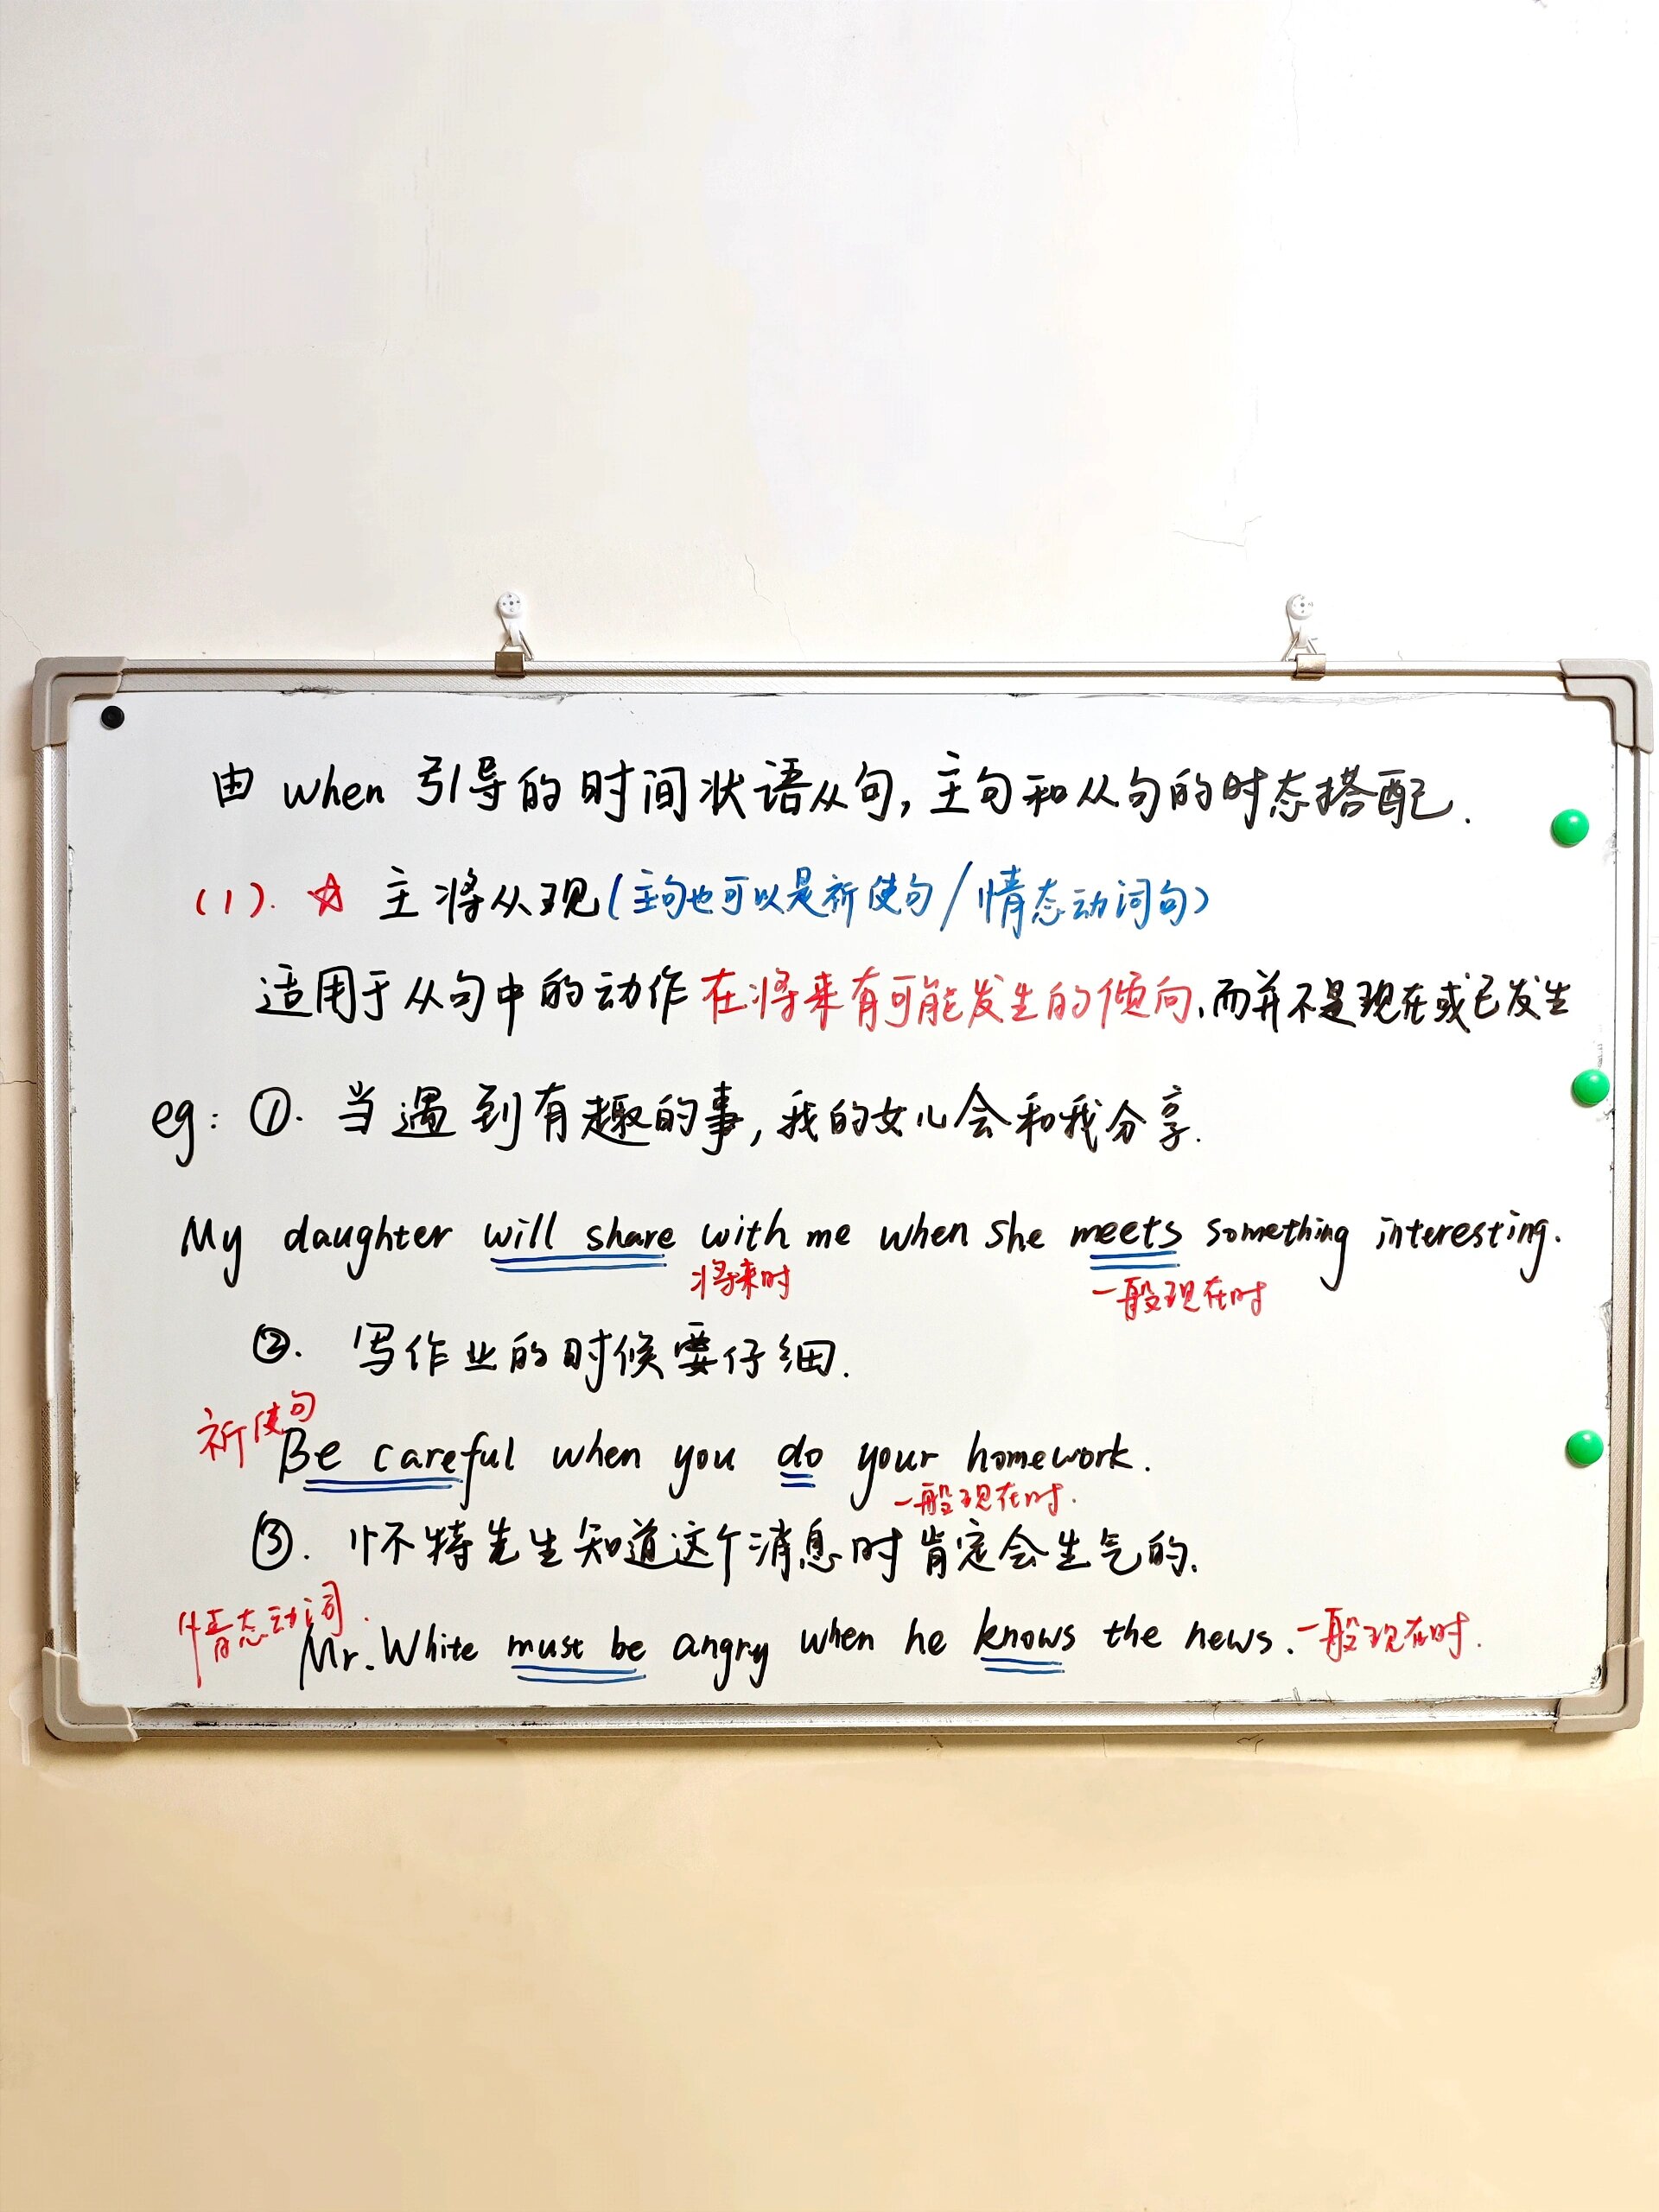 由 when 引导的时间状语从句, 主句和从句的时态搭配.
(1). ☆ 主将从现(主句也可以是祈使句/情态动词句)
适用于从句中的动作在将来有可能发生的倾向,而并不是现在或已发生
eg: ①. 当遇到有趣的事, 我的女儿会和我分享.
My daughter will share with me when she meets something interesting.
将来时 一般现在时
②. 写作业的时候要仔细.
祈使句
Be careful when you do your homework.
一般现在时.
③. 怀特先生知道这个消息时肯定会生气的.
情态动词.
Mr. White must be angry when he knows the news. 一般现在时.